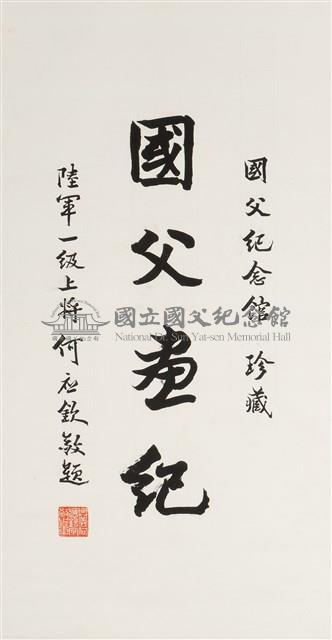 國父紀念館 珍藏
國父畫紀
陸軍一級上將何應欽敬題
國立國父紀念館
National Dr. Sun Yat-sen Memorial Hall